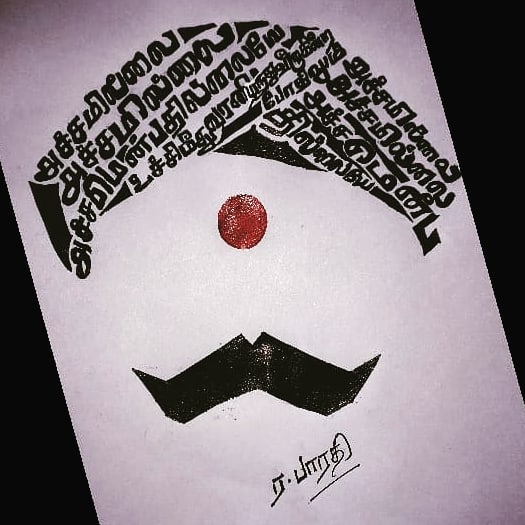 அச்சமில்லை
அச்சமில்லை
அச்சமென்பதில்லையே
உச்சிமீதுவானிடிந்து
வீழுகின்ற
போதிலும்
அச்சமில்லை
அச்சமில்லை
அச்சமென்ப
தில்லையே
ர. பாரதி